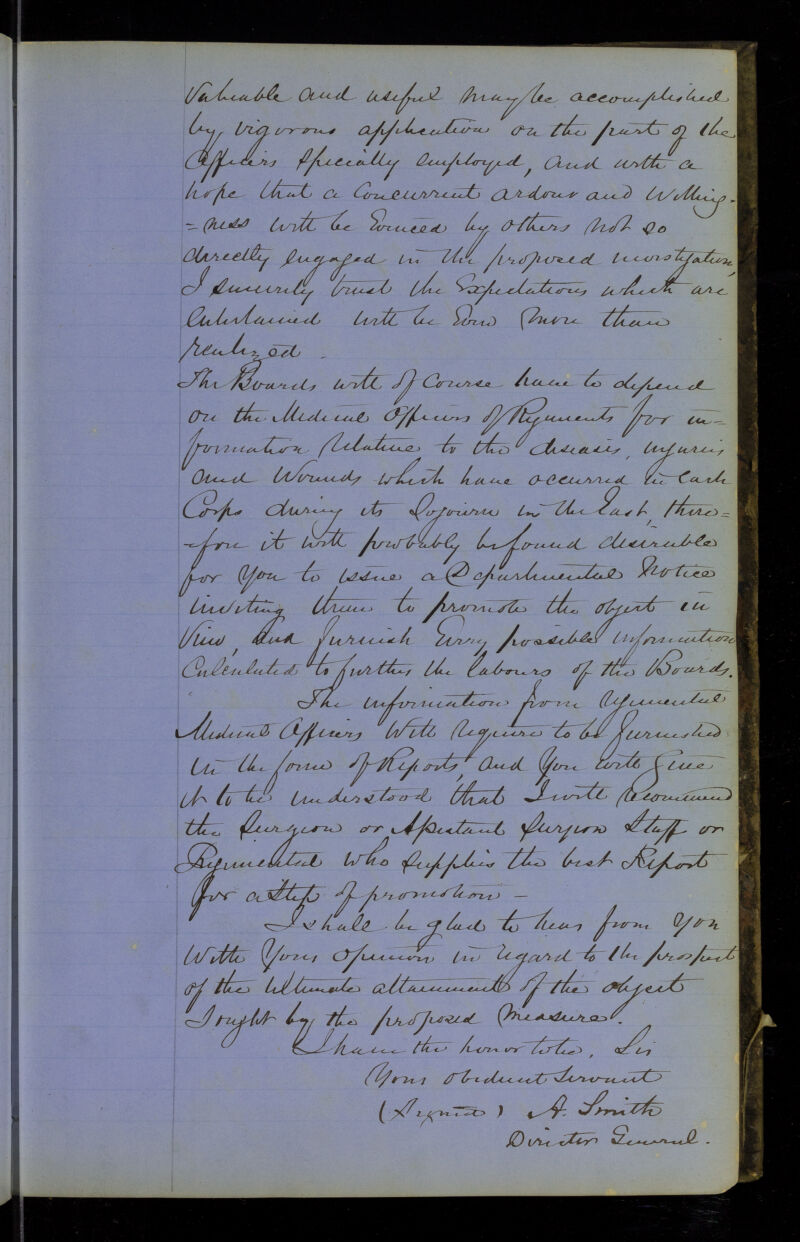 Valuable and useful may be accomplished
by vigorous application on the part of the
Officers specially employed, and with a
hope that a Concurrent ardour and Willing-
=ness will be Evinced by others not so
directly engaged in the proposed investigation,
I sincerely trust the Expectations which are
Entertained will be Even more than
realized.
The Boards will of Course have to depend
on the Medical Officers of Regiments for in=
formation relative to the diseases, injuries
and Wounds which have occurred in Each
Corps during its Sojourn in the East, there=
=fore it will probably be found desirable
for You to issue a Departmental Notice
inviting them to promote the object in
View, and furnish Every possible information
Calculated to further the labours of the Boards.
The information from regimental
Medical Officers Will require to be furnished
in the form of Reports, and You will give
it to be understood that I will recommend
the Surgeon or Assistant Surgeon Staff or
Regimental who supplies the best Report
for a Step of promotion -
I shall be glad to hear from You
With Your opinion in regard to the prospect
of the Ultimate attainment of the object
Sought by the proposed Measure.
I have the honor to be, Sir
Your obedient Servant
(Signed) A. Smith
Director General.